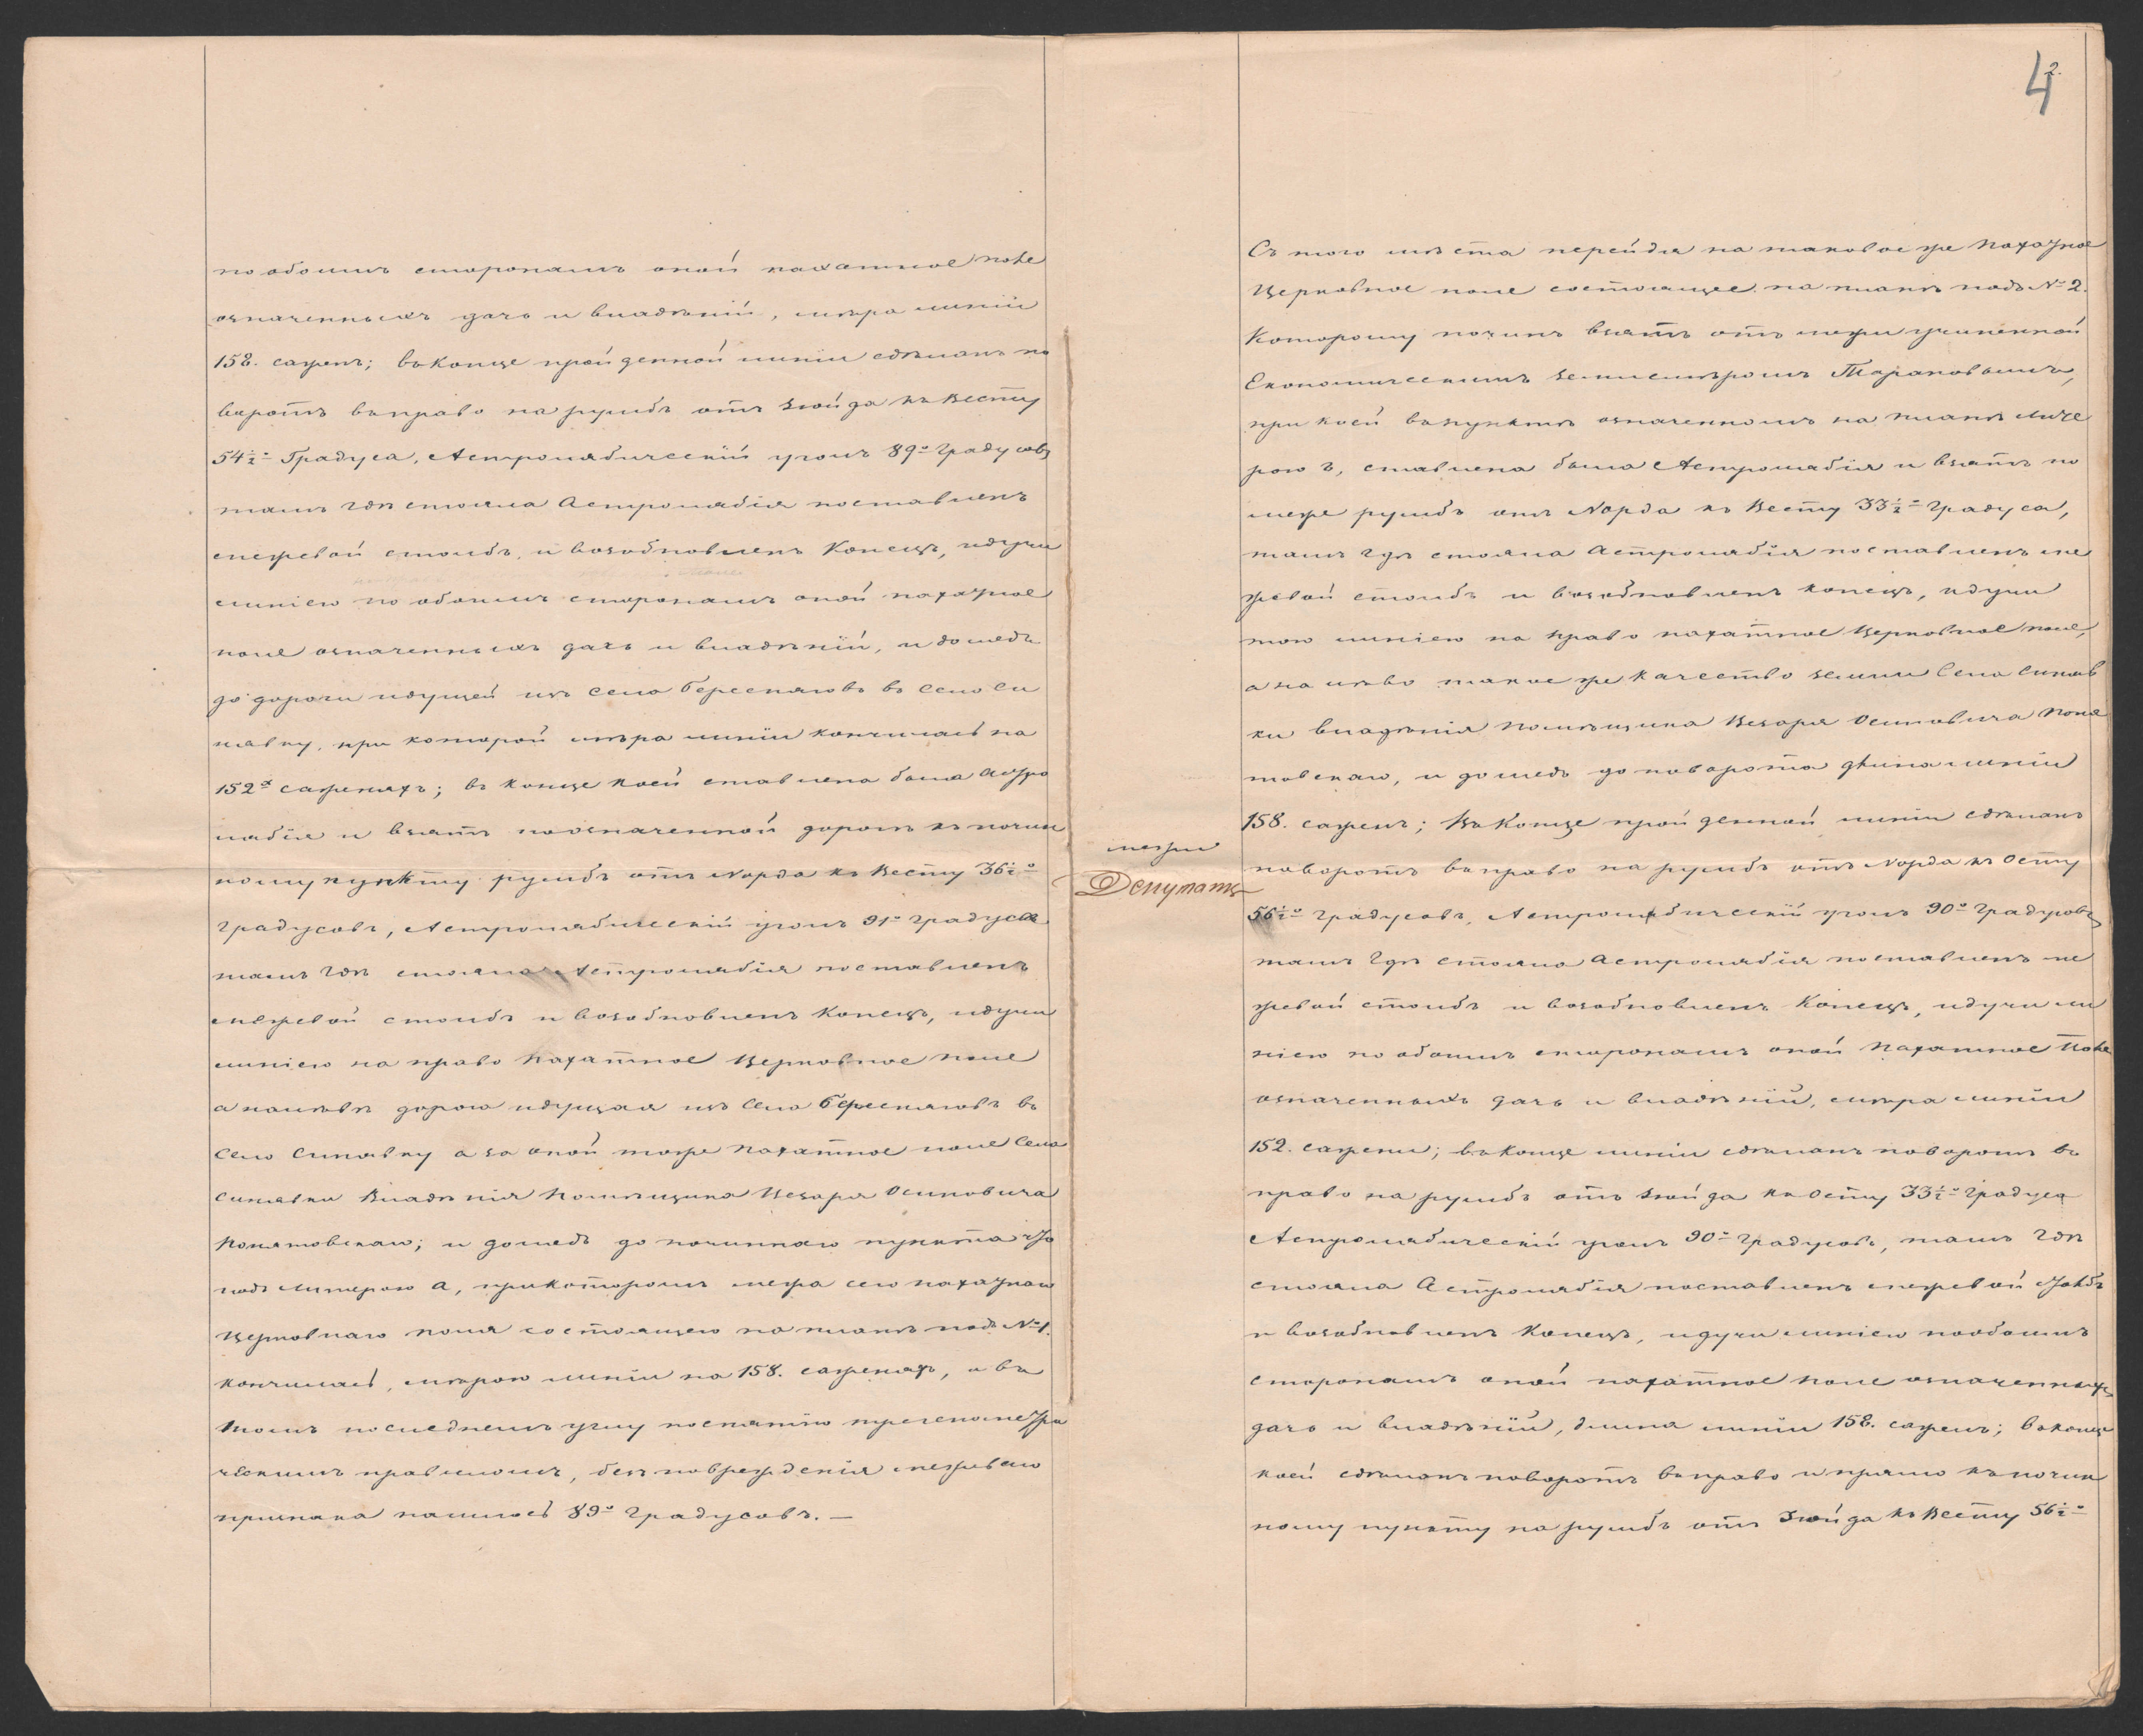 по обоимъ сторонамъ оной пахатное поле
означенныхъ дачь и владѣній, мѣра линіи
158. саженъ; въ концѣ пройденной линіи сдѣланъ по
воротъ въ право на румбъ отъ Зюйда къ Весту
54½° Градуса, Астролябическій уголъ 89° Градусовъ
тамъ гдѣ стояла Астролябія поставленъ
межевой столбъ, и возобновленъ Конецъ, идучи
линіею по обоимъ сторонамъ оной пахатное
поле означенныхъ дачь и владѣній, и дошедъ
до дороги идущей изъ села Береспяговъ въ село Си
нявку, при которой мѣра линіи кончилась на
152х саженяхъ; въ концѣ коей ставлена была Астро
лябія и взятъ по означенной дорогѣ къ почин
ному пункту румбъ отъ Норда къ Весту 36½°
градусовъ, Астролябическій уголъ 91° градусъ
тамъ гдѣ стояла Астролябія поставленъ
межевой столбъ и возобновленъ Конецъ, идучи
линіею на право пахатное Церковное поле
а налѣвѣ дорога идущая изъ Села Береспяговъ въ
Село Синявку а за оной тоже пахатное поле Села
Синявки Владѣнія помѣщика Цезаря Осиповича
Понятовскаго; и дошедъ до починнаго пункта что
подъ литерою А, при которомъ межа сего пахатнаго
Церковнаго поля состоящего на планѣ подъ №1.
кончилась, мѣрою линіи на 158. саженяхъ, и въ
томъ последнемъ углу по снятію тригонометри
ческимъ правиломъ, безъ поврежденія межеваго
признака нашлось 89° градусовъ. —
межи
Депутатъ
4
2.
Съ того мѣста перейдя на таковое же пахатное
Церковное поле состоящее на планѣ подъ №2.
Которому починъ взятъ отъ межи учиненной
Економическимъ землемѣромъ Тарановымъ,
при коей въ пунктѣ означенномъ на планѣ лите
рою Б, ставлена была Астролябія и взятъ по
меже румбъ отъ Норда къ Весту 33½° градуса,
тамъ гдѣ стояла Астролябія поставленъ ме
жевой столбъ и возобновленъ конецъ, идучи
тою линіею на право пахатное Церковное поле,
а на лѣво такое же качество земли Села Синяв
ки владѣнія помѣщика Цезаря Осиповича Поня
товскаго, и дошедъ до поворота длина линіи
158. саженъ; Въ Концѣ пройденной линіи сдѣланъ
поворотъ въ право на румбъ отъ Норда къ Осту
56½° градусовъ, Астролябическій уголъ 90° градусовъ
тамъ гдѣ стояла Астролябія поставленъ ме
жевой столбъ и возобновленъ Конецъ, идучи ли
ніею по обоимъ сторонамъ оной пахатное Поле
означенныхъ дачь и владѣній, мѣра линіи
152. сажени; въ концѣ линіи сдѣланъ поворотъ въ
право на румбъ отъ Зюйда къ Осту 33½° градуса
Астролябическій уголъ 90° градусовъ, тамъ гдѣ
стояла Астролябія поставленъ межевой столбъ
и возобновленъ Конецъ, идучи линіею по обоимъ
сторонамъ оной пахатное поле означенныхъ
дачь и владѣній, длина линіи 158. саженъ; въ концѣ
коей сдѣланъ поворотъ въ право и прямо къ почин
ному пункту на румбъ отъ Зюйда къ Весту 56½°